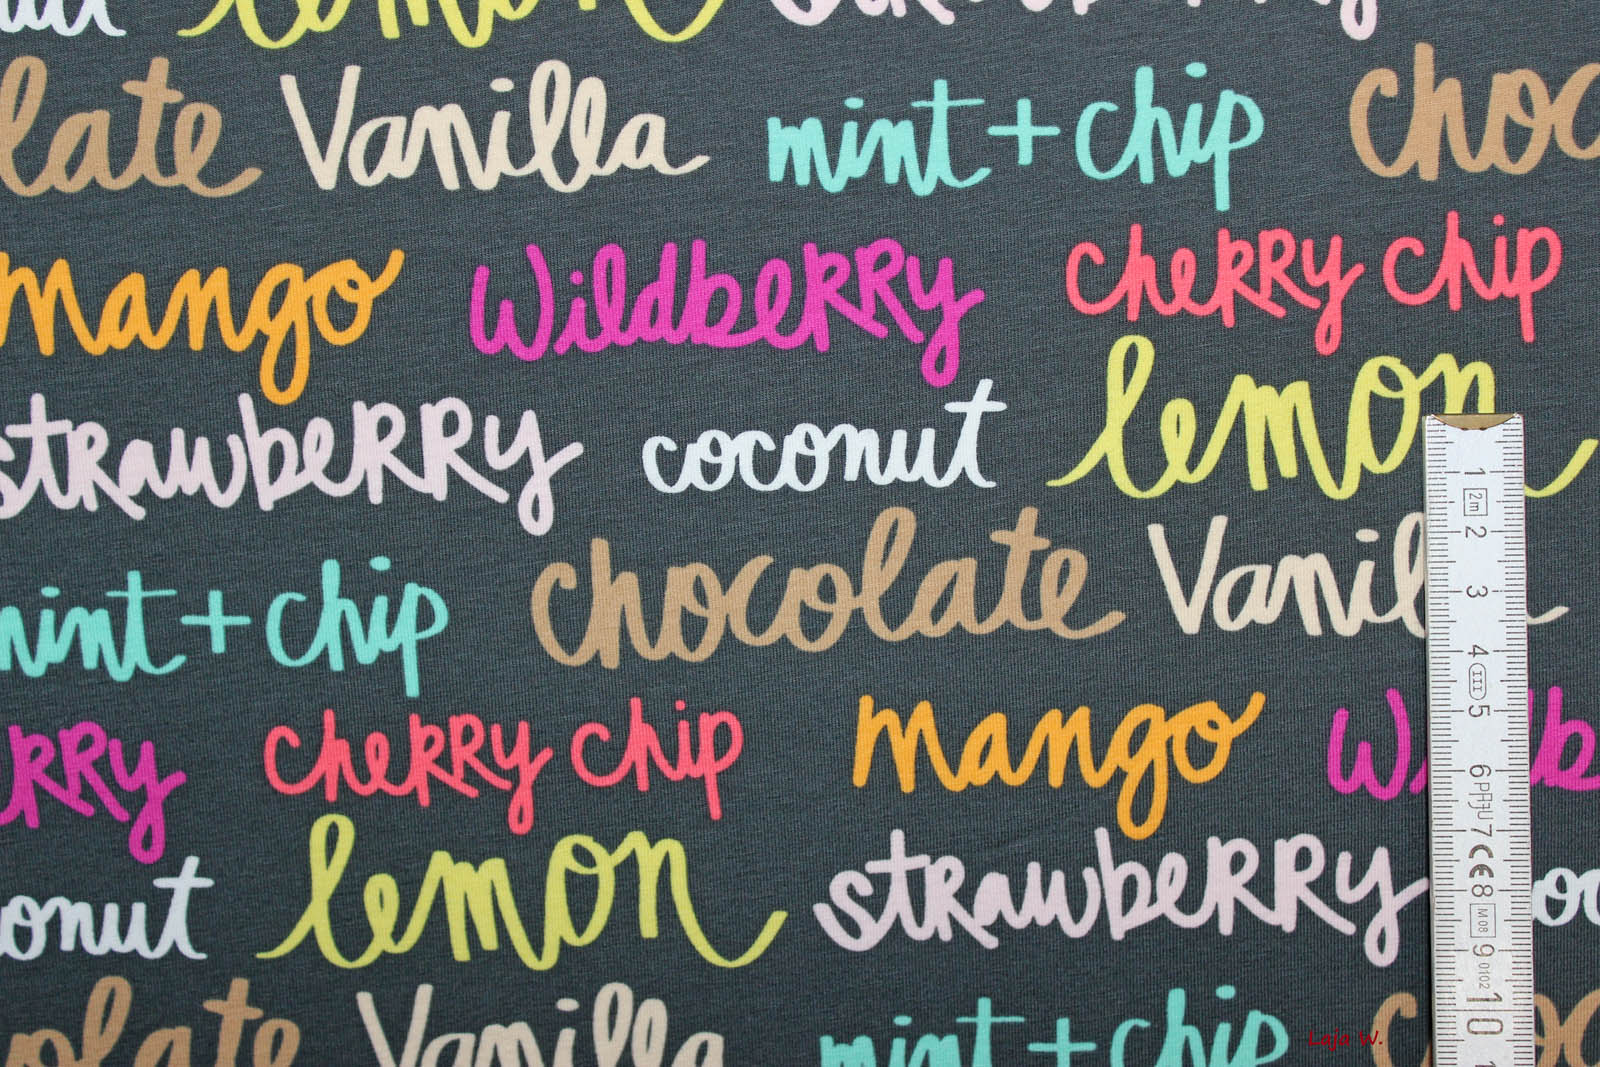 lemon strawberry
late Vanilla mint + chip choc
mango Wildberry cherry chip
strawberry coconut lemon
mint + chip chocolate Vanil
rry cherry chip mango W b
onut lemon strawberry oc
olate Vanilla mint + chip c oc
1
2m
2
3
4
III
5
6
7
CE
8
M08
9
0102
10
Laja W.